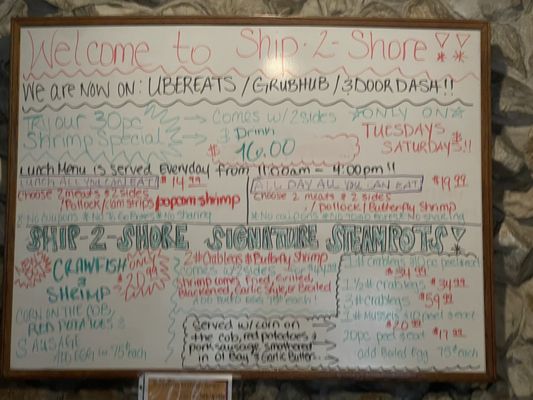 Welcome to Ship-2-Shore!!
We are now on: UBEREATS / GRUBHUB / 3DOORDASH!!
Try our 30pc
Shrimp Special
Comes w/ 2 sides
& Drink
$ 16.00
ONLY ON
TUESDAYS &
SATURDAYS!!
Lunch Menu is served Everyday from 11:00am - 4:00pm!!
LUNCH ALL YOU CAN EAT! $14.99
choose 2 meats & 2 sides
/Pollock/Clam strips/popcorn shrimp
*No Coupons *No To Go Boxes *No Sharing
ALL DAY ALL YOU CAN EAT! $19.99
choose 2 meats & 2 sides
/Pollock/Butterfly Shrimp
*No coupons *No To Go Boxes *No sharing
SHIP-2-SHORE SIGNATURE STEAMPOTS!
CRAWFISH
&
SHRIMP
ONLY
$20.99
CORN ON THE COB,
RED POTATOES &
SAUSAGE
Add Egg for 75¢ each
2# Crablegs & Butterfly Shrimp
comes w/ 2 sides
Shrimp comes Fried, Grilled,
Blackened, Garlic Style, or Broiled
Add boiled egg 75¢ each!
Served w/ corn on
the cob, red potatoes &
pork sausage smothered
in Ol Bay & Garlic Butter.
1# crablegs & 10pc peel & eat
$34.99
1 1/2# crablegs $34.99
3# crablegs $59.99
1# Mussels & 10 peel & eat
$20.99
20pc peel & eat $17.99
add Boiled Egg 75¢ each